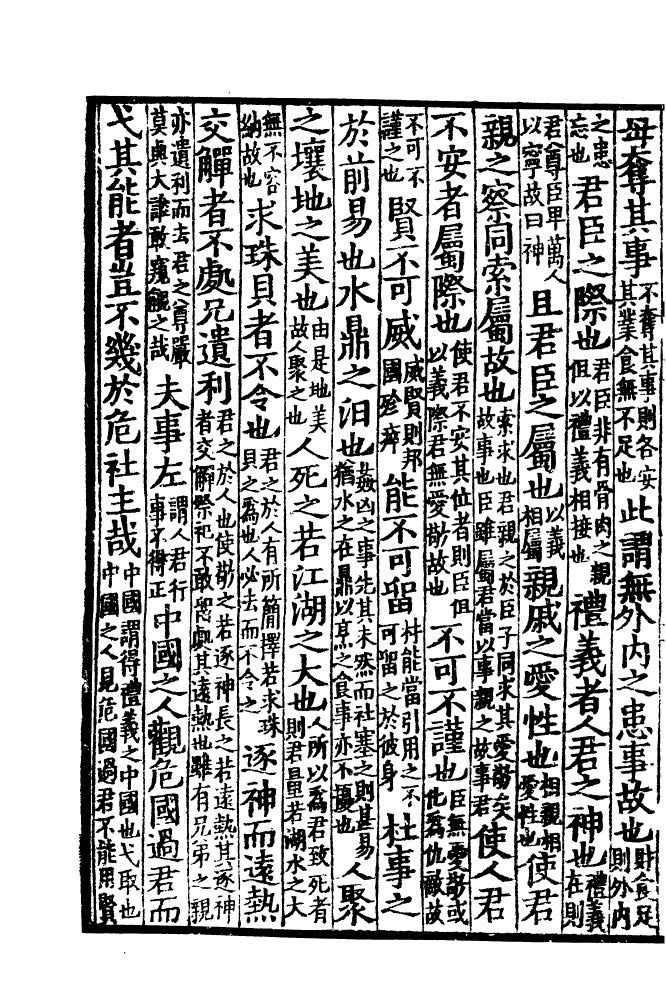 毋奪其事不奪其事則各安其業食無不足也此謂無外內之患事故也財食足則外內
之患忘也君臣之際也君臣非有骨肉之親但以禮義相接也禮義者人君之神也禮義在則
君尊臣卑萬人以寧故曰神且君臣之屬也以義相屬親戚之愛性也相親相愛性也使君
親之察同索屬故也索求也君親之於臣子同求其愛敬矣故事也臣雖屬君當以事親之故事君使人君
不安者屬際也使君不安其位者則臣但以義際君無愛敬故也不可不謹也臣無愛敬或化為仇敵故
不可不謹之也賢不可威威賢則邦國殄瘁能不可留材能當引用之不可留之於彼身杜事之
於前易也水鼎之汨也姦凶之事先其未然而杜塞之則甚易猶水之在鼎以烹之食事亦不擾也人聚
之壤地之美也由是地美故人聚之也人死之若江湖之大也人所以為君致死者則君量若湖水之大
無不容納故也求珠貝者不令也君之於人有所簡擇若求珠貝之為也人必去而不令之逐神而遠熱
交觶者不處兄遺利君之於人也使敬之若逐神長之若遠熱其逐神者交觶祭祀不敢處其遠熱也雖有兄弟之親
亦遺利而去君之尊嚴莫與大誰敢窺覦之哉夫事左謂人君行事不得正中國之人觀危國過君而
弋其能者豈不幾於危社主哉中國謂得禮義之中國也弋取也中國之人見危國過君不能用賢